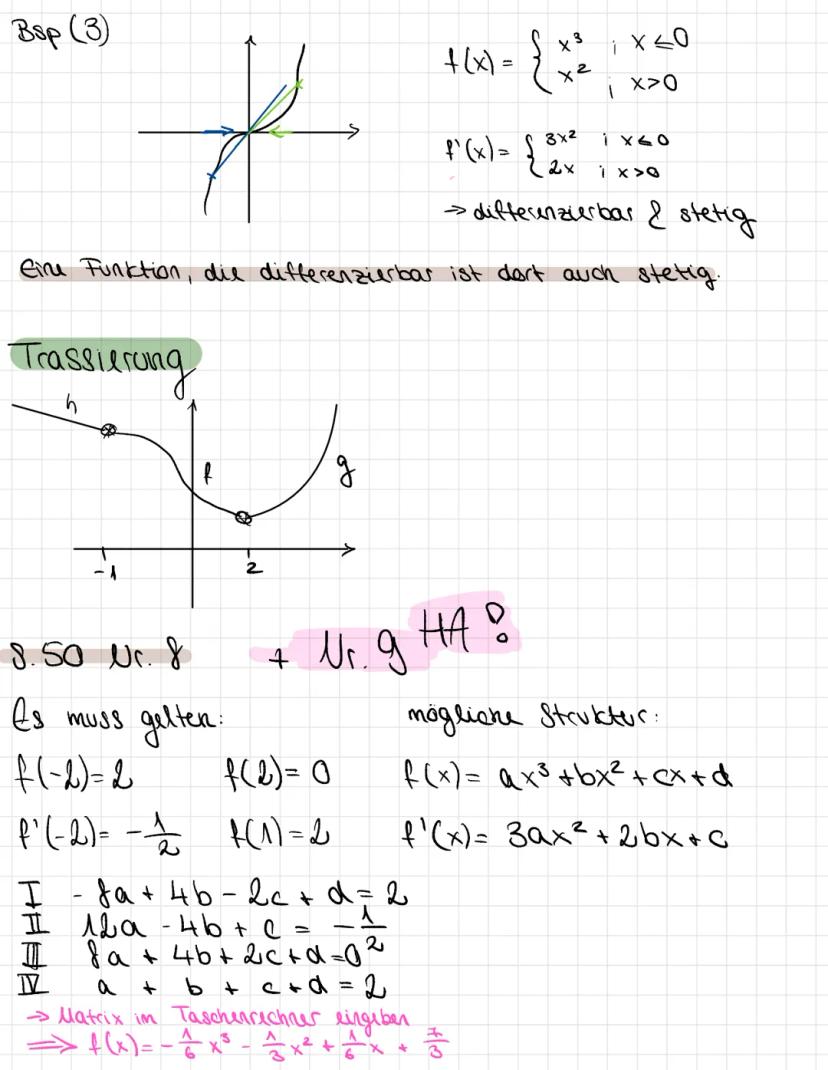 Bsp (3)
f(x) = { x³ ; x≤0
x² ; x>0
f'(x) = { 3x² ; x≤0
2x ; x>0
→ differenzierbar & stetig
Eine Funktion, die differenzierbar ist dort auch stetig.
Trassierung
h
f
g
-1
2
S.50 Nr. 8 + Nr. 9 HA !
Es muss gelten: mögliche Struktur:
f(-2)=2 f(2)=0 f(x)= ax³+bx²+cx+d
f'(-2)= -1/2 f(1)=2 f'(x)= 3ax²+2bx+c
I -8a + 4b - 2c + d = 2
II 12a - 4b + c = -1/2
III 8a + 4b + 2c + d = 0
IV a + b + c + d = 2
→ Matrix im Taschenrechner eingeben
⟹ f(x)= -1/6 x³ - 1/3 x² + 1/6 x + 7/3